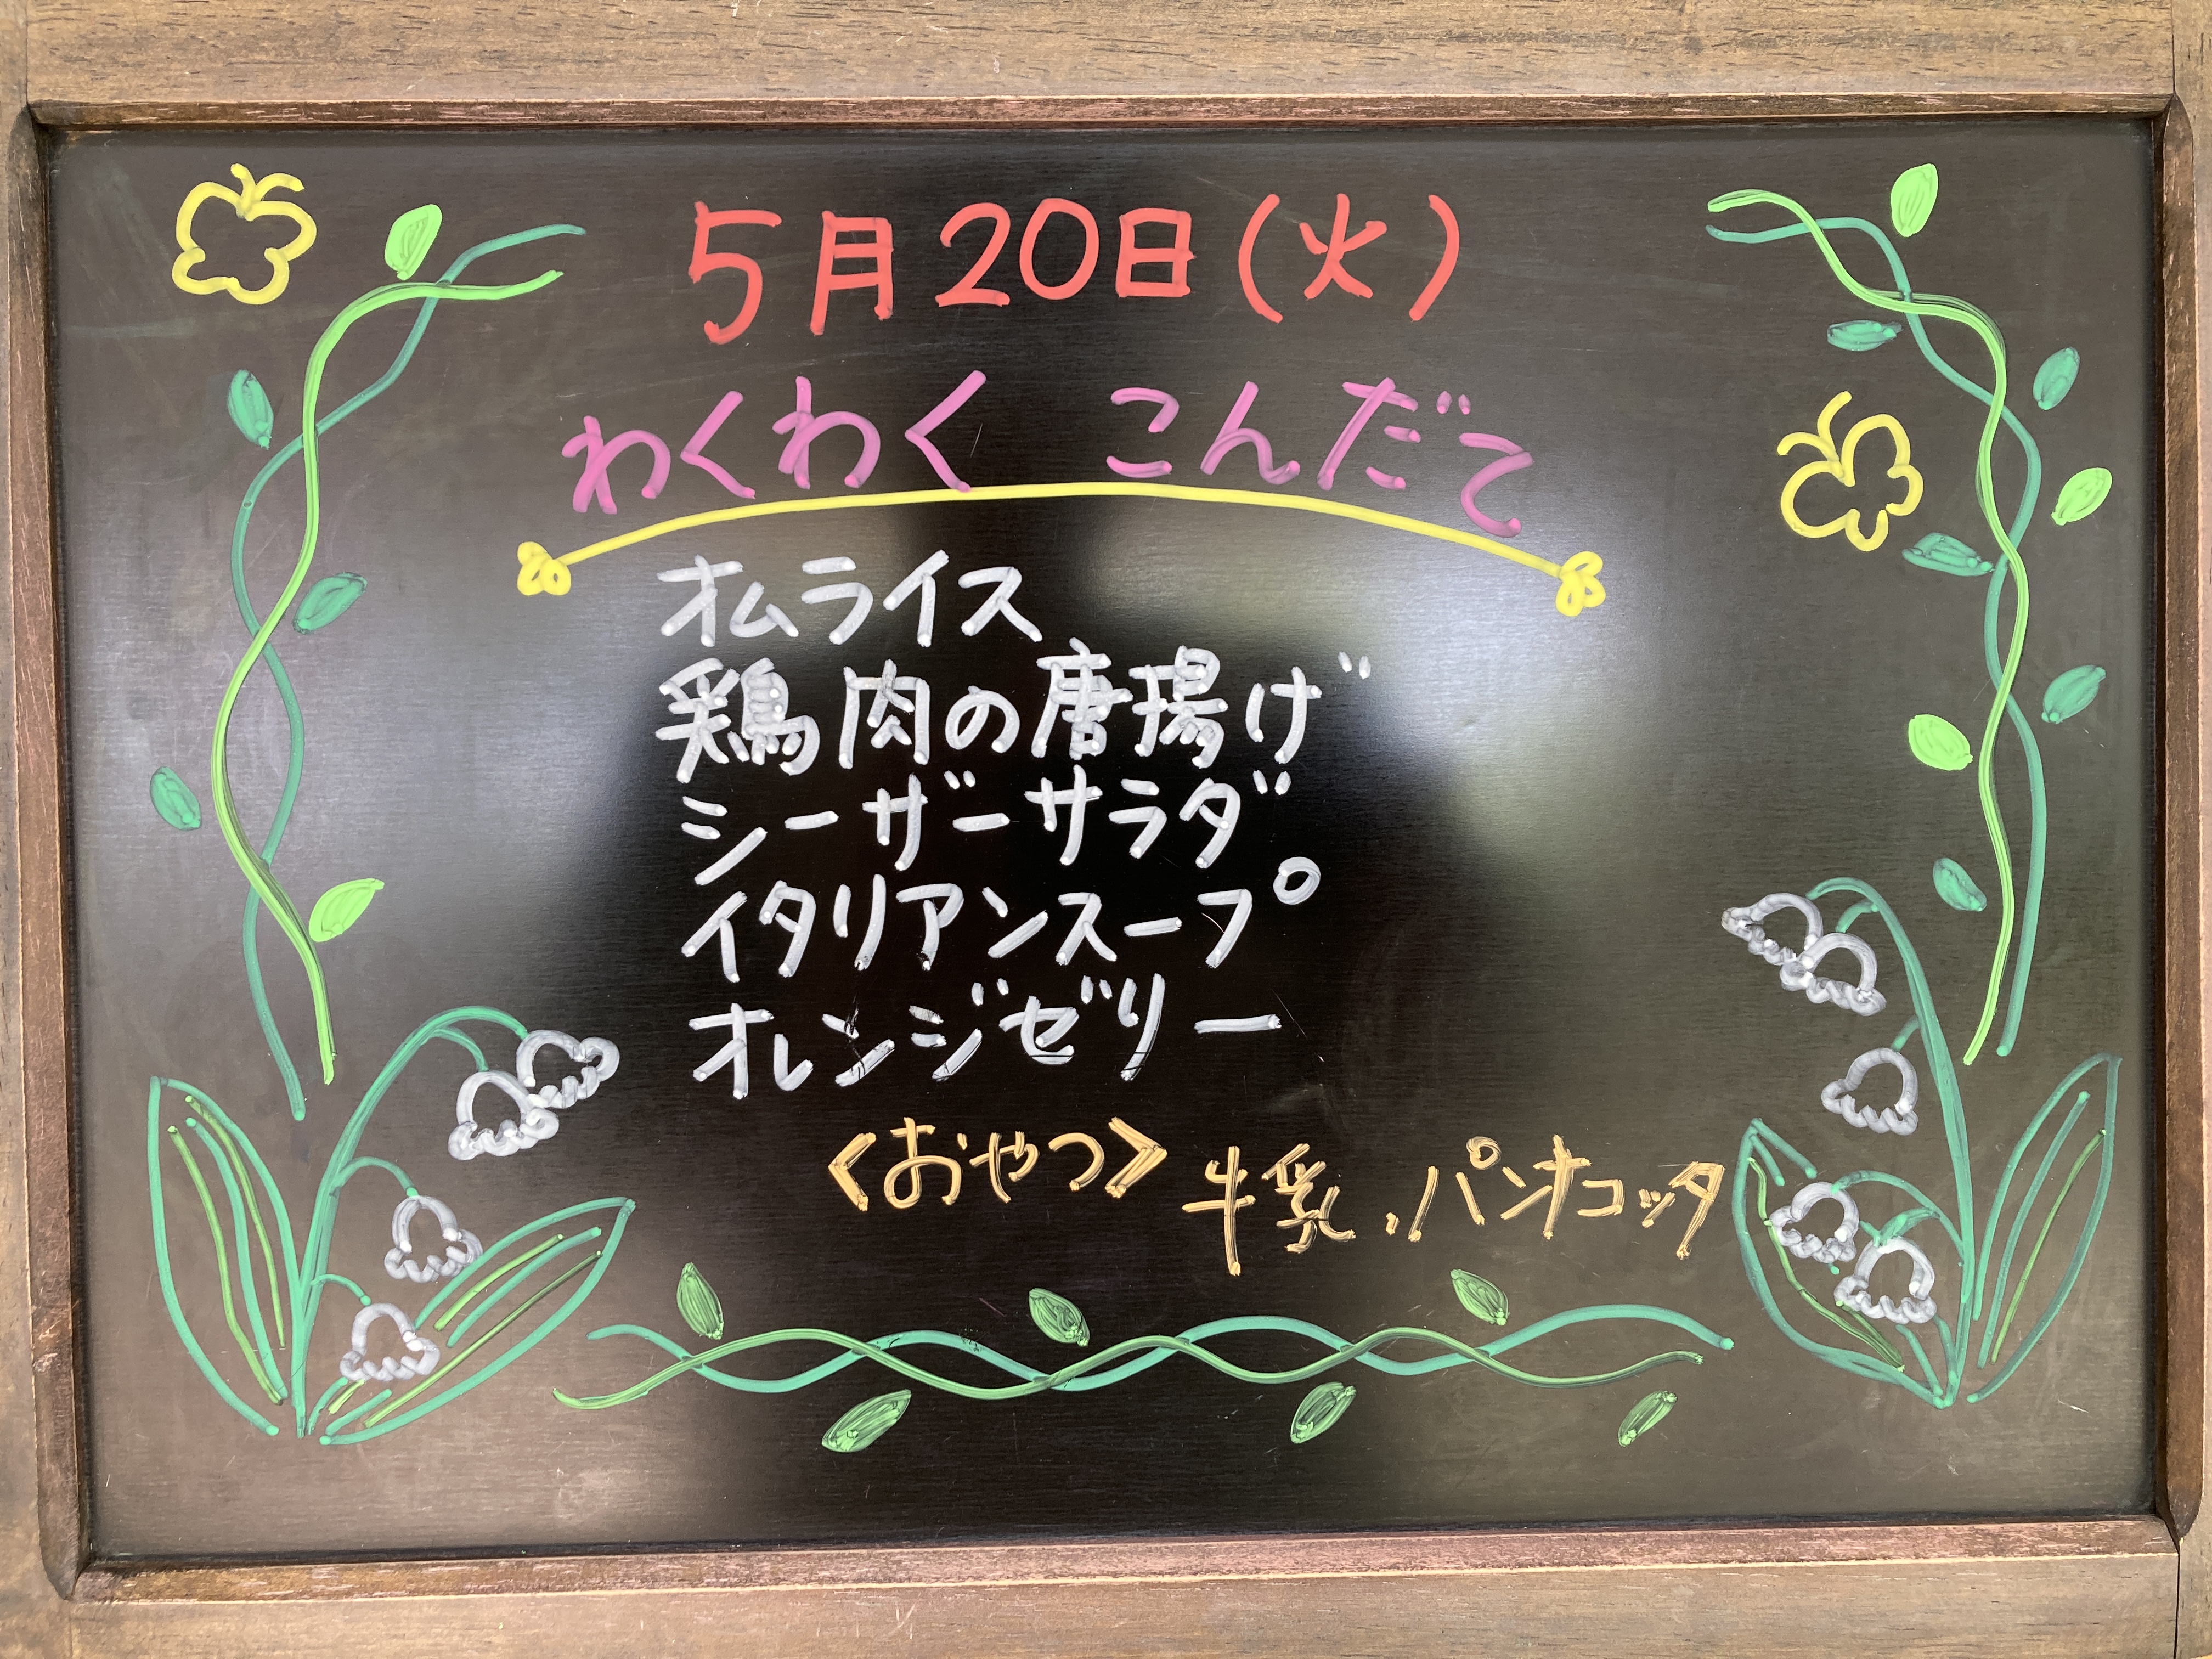 5月20日(火)
わくわく こんだて
オムライス
鶏肉の唐揚げ
シーザーサラダ
イタリアンスープ
オレンジゼリー
<おやつ> 牛乳、パンオコッタ